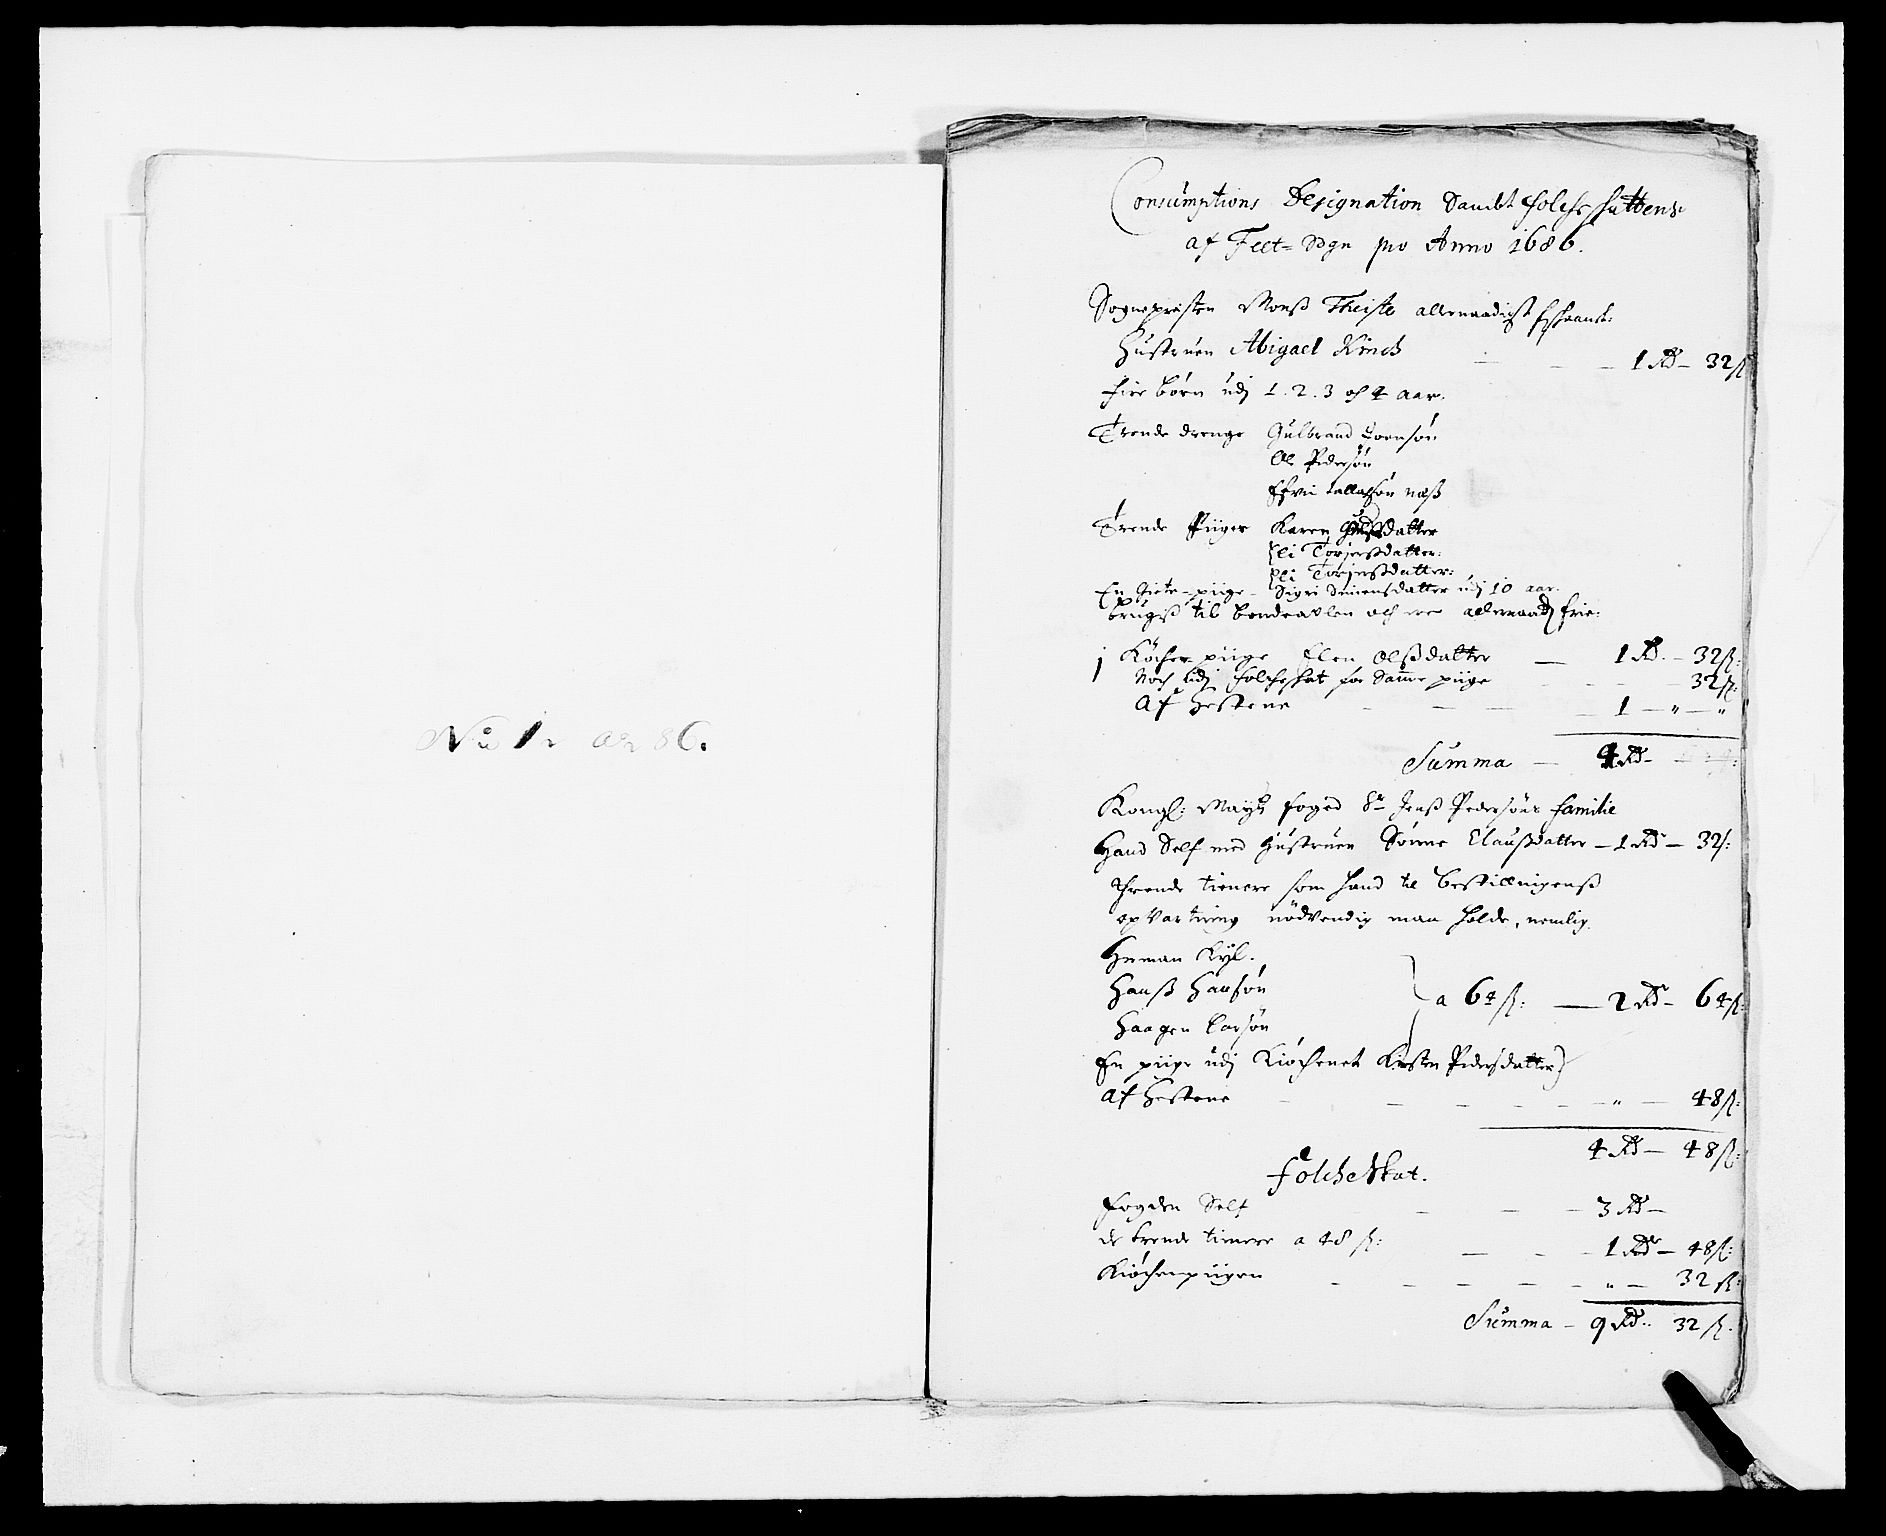 No 1 ar 86.
Consumptions Designation Sambt folcheskattens
af Feet Sogn pro Anno 1686.
Sognepresten Monß Theiste allernaadigst forskaanet:
Hustruen Abigael Kinck — 1 Rd — 32 ß
fire børn udj 1. 2. 3 och 4 aar.
Trende drenge Gulbrand Loensøn
Ole Pedersøn
næß
Trende Piiger Karen datter
Eli Torgerßdatter:
Torgerßdatter:
En piige Sigri Simensdatter udj 10 aar.
brugis til bondeaulen och ere allernaad frie:
j Køcken piige Elen Olßdatter — 1 Rd. — 32 ß:
Noch udj folcheskat for Samme piige — 32 ß:
Af Hestene — 1 — " — "
Summa — 4 Rd —
Kongl: Mayts foged Sr Jenß Pedersøns familie
Hand Self med Hustruen Sønne Claußdatter — 1 Rd — 32 ß:
Thrende tienere som hand til bestillingenß
opvartning nødvendig maa holde, nemlig.
Herman Kyl.
Hanß Hansøn
Haagen Larsøn
a 64 ß: — 2 Rd — 64 ß:
En piige udj Kiøchenet Kirsten Pedersdatter
Af Hestene — " — 48 ß:
4 Rd — 48 ß:
folcheskat.
fogden Self — 3 Rd —
de trende tienere a 48 ß: — 1 Rd — 48 ß:
Kiøchenpiigen — " — 32 ß:
Summa — 9 Rd: 32 ß.